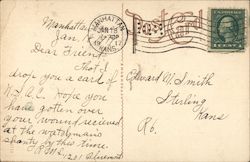 Manhattan
Jan 18
Dear Friend
That I
drop you a card of
K.S.A.C. Hope you
have gotten over
your wound recieved
at the watchmans
shanty by this time.
1201 Bluemont
MANHATTAN
JAN 18
KANS.
Post Card
Edward W. Smith
Sterling
Kans
R6.